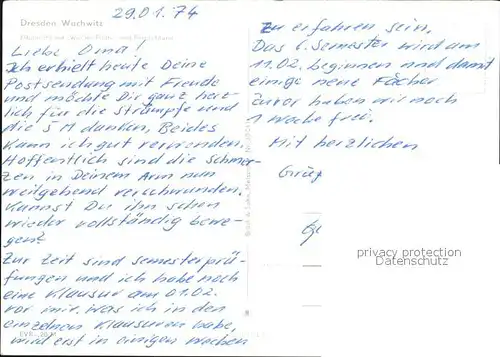 29.01.74
Dresden Wachwitz
Liebe Oma!
Ich erhielt heute Deine
Postsendung mit Freude
und möchte Dir ganz herz-
lich für die Strümpfe und
die 5 M danken, Beides
kann ich gut verwenden.
Hoffentlich sind die Schmer-
zen in Deinem Arm nun
weitgehend verschwunden.
Kannst Du ihn schon
wieder vollständig bewe-
gen?
Zur Zeit sind Semesterprü-
fungen und ich habe noch
eine Klausur am 01.02.
vor mir. Was ich in den
einzelnen Klausuren habe,
wird erst in einigen Wochen
EVP -,20 M
zu erfahren sein.
Das 6. Semester wird am
11.02. beginnen und damit
einige neue Fächer
Zuvor haben wir noch
1 Woche frei.
Mit herzlichen
Grüß
privacy protection
Datenschutz